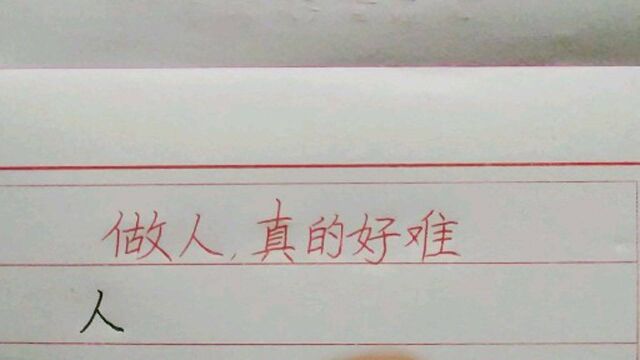 做人,真的好难
人